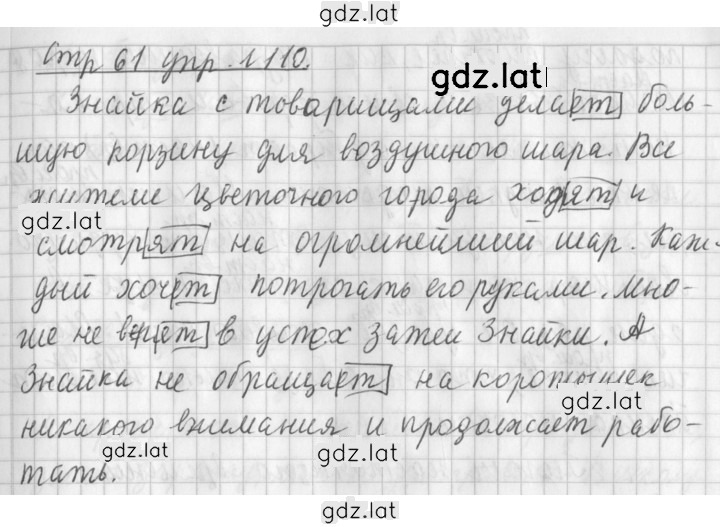 gdz.lat
Стр 61 упр. 110.
gdz.lat
Знайка с товарищами делает боль-
шую корзину для воздушного шара. Все
жители Цветочного города ходят и
gdz.lat
смотрят на огромнейший шар. Каж-
дый хочет потрогать его руками. Мно-
гие не верет в успех затеи Знайки. А
Знайка не обращает на коротышек
gdz.lat
никакого внимания и продолжает рабо-
gdz.lat
gdz.lat
тать.
gdz.lat